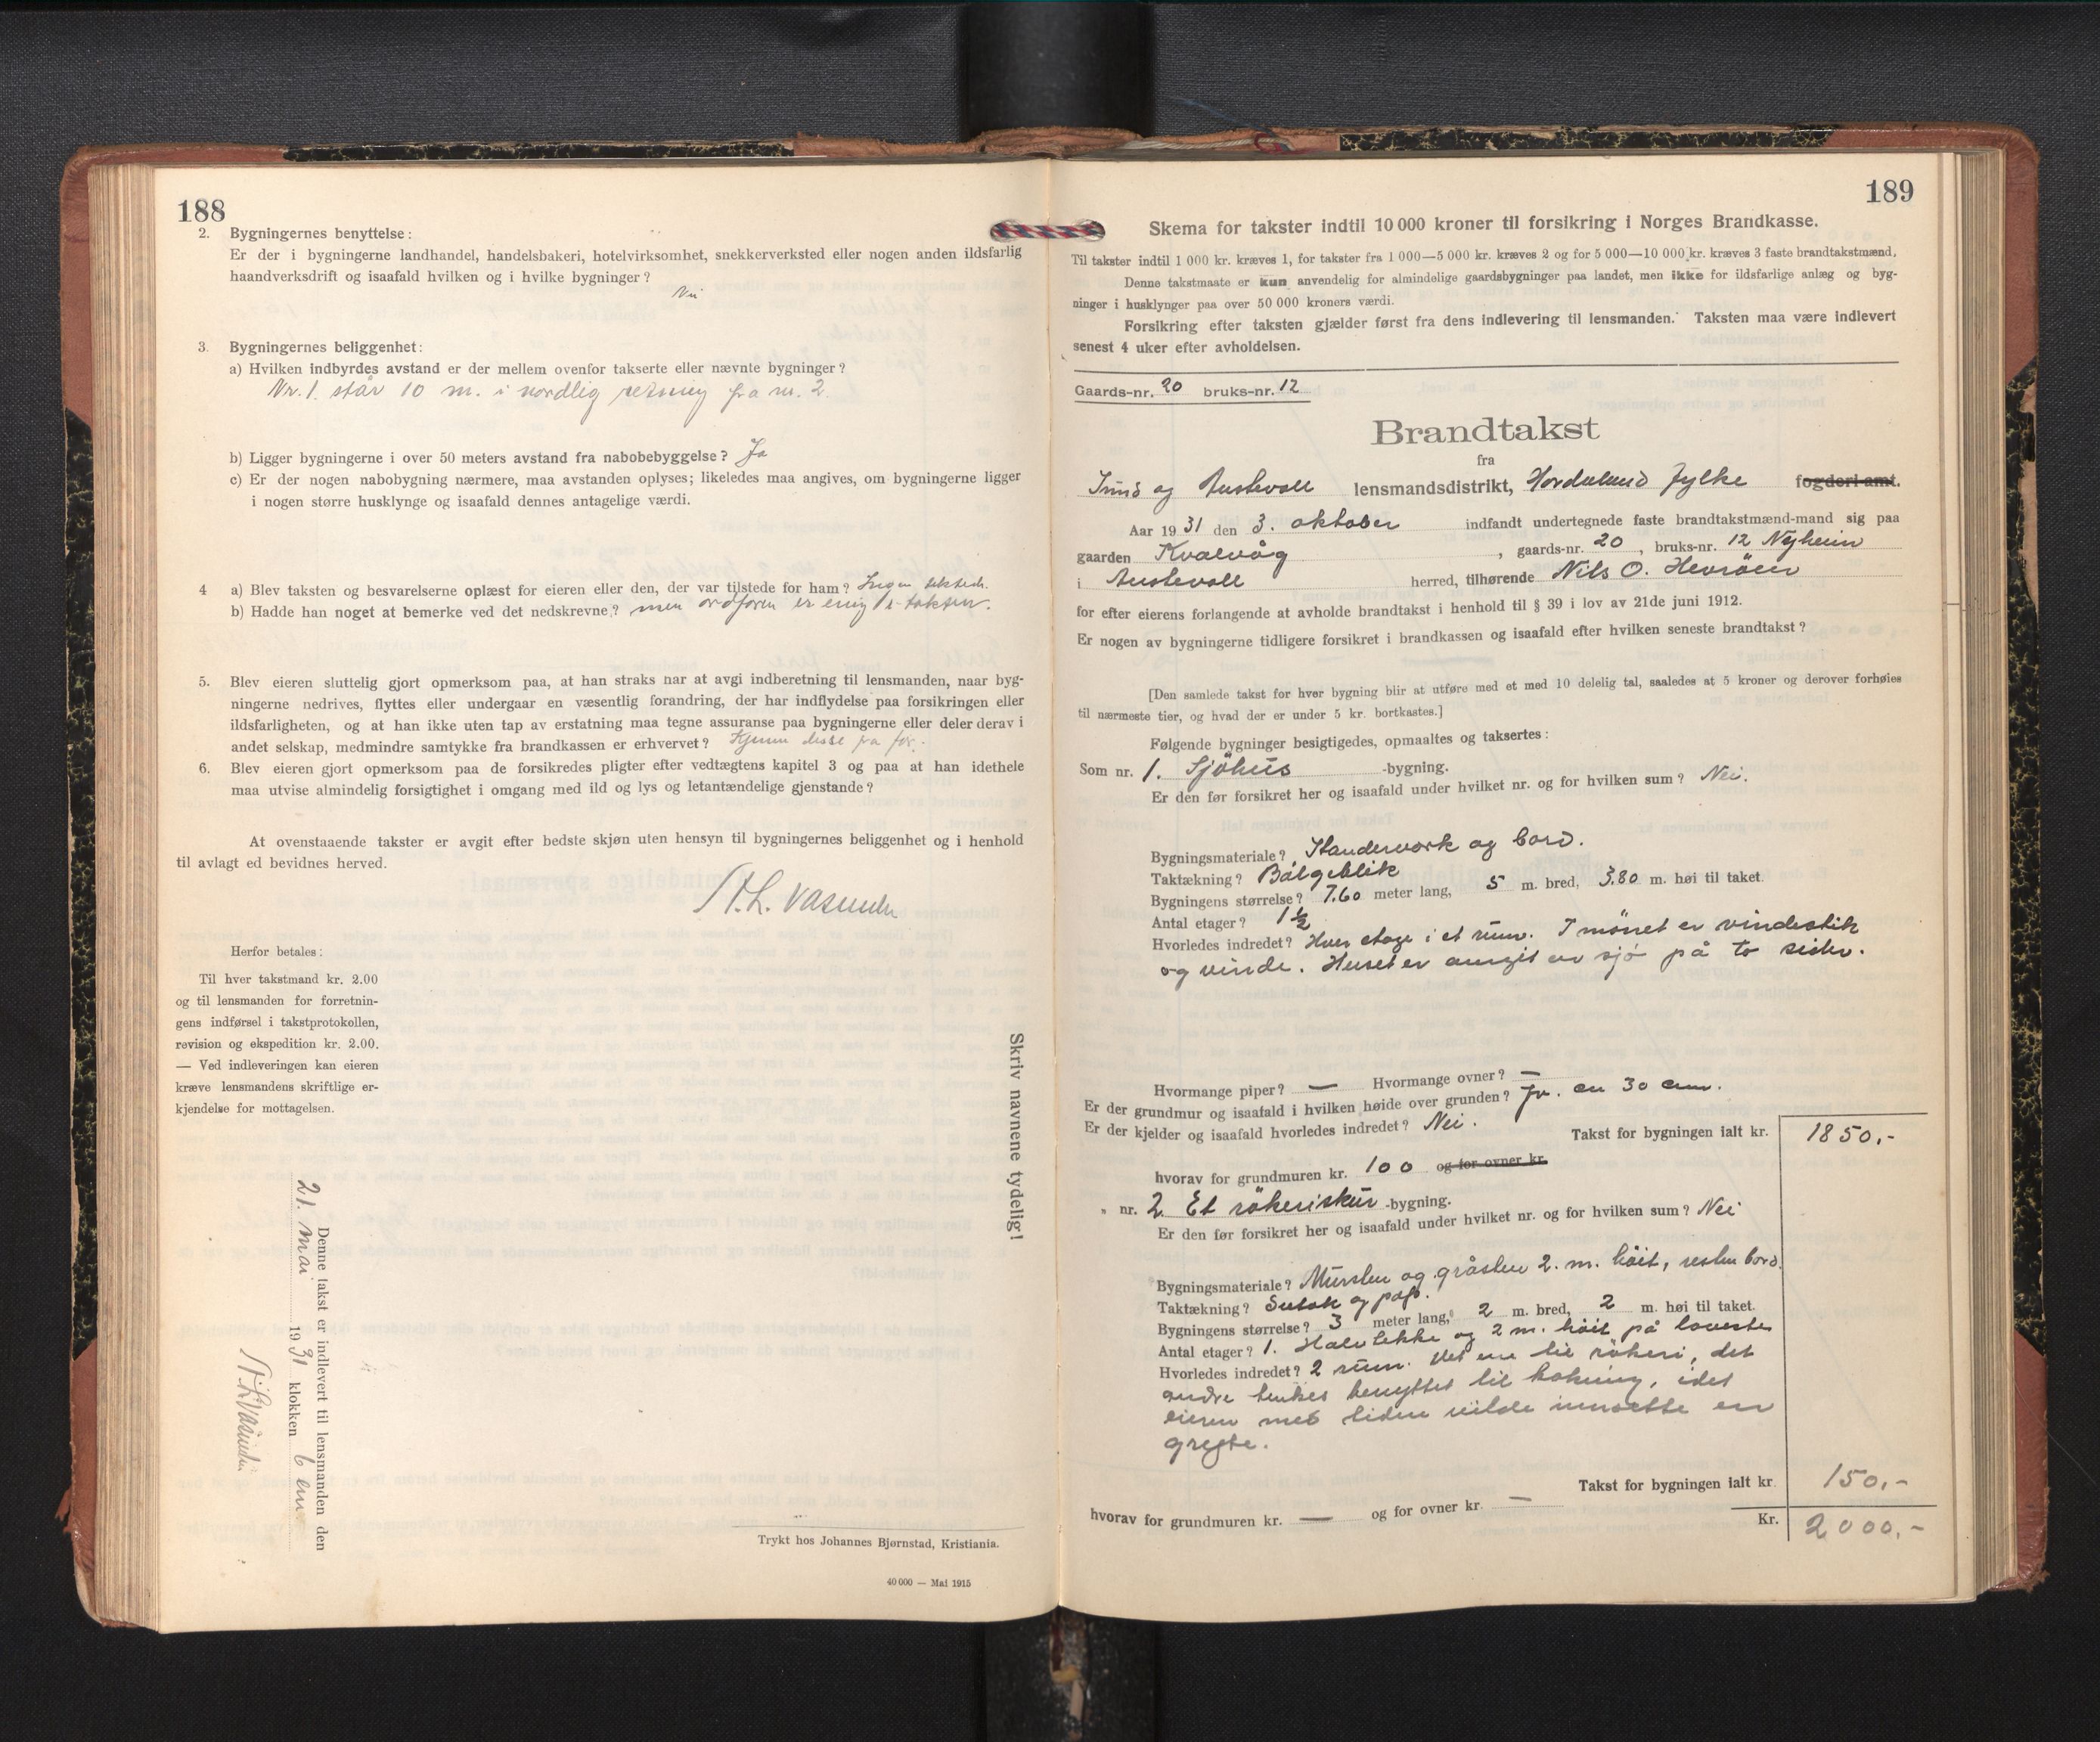 188
2. Bygningernes benyttelse:
Er der i bygningerne landhandel, handelsbakeri, hotelvirksomhet, snekkerverksted eller nogen anden ildsfarlig
haandverksdrift og isaafald hvilken og i hvilke bygninger?
Nei
3. Bygningernes beliggenhet:
a) Hvilken indbyrdes avstand er der mellem ovenfor takserte eller nævnte bygninger?
Nr. 1. står 10 m. i nordlig retning fra nr. 2.
b) Ligger bygningerne i over 50 meters avstand fra nabobebyggelse? Ja
c) Er der nogen nabobygning nærmere, maa avstanden oplyses; likeledes maa angives, om bygningerne ligger
i nogen større husklynge og isaafald dennes antagelige værdi.
4 a) Blev taksten og besvarelserne oplæst for eieren eller den, der var tilstede for ham? Ingen tilstede.
b) Hadde han noget at bemerke ved det nedskrevne? men er enig i taksten.
5. Blev eieren sluttelig gjort opmerksom paa, at han straks har at avgi indberetning til lensmanden, naar byg-
ningerne nedrives, flyttes eller undergaar en væsentlig forandring, der har indflydelse paa forsikringen eller
ildsfarligheten, og at han ikke uten tap av erstatning maa tegne assuranse paa bygningerne eller deler derav i
andet selskap, medmindre samtykke fra brandkassen er erhvervet? Kjenner disse fra før.
6. Blev eieren gjort opmerksom paa de forsikredes pligter efter vedtægtens kapitel 3 og paa at han idethele
maa utvise almindelig forsigtighet i omgang med ild og lys og letantændelige gjenstande?
At ovenstaaende takster er avgit efter bedste skjøn uten hensyn til bygningernes beliggenhet og i henhold
til avlagt ed bevidnes herved.
Herfor betales:
Til hver takstmand kr. 2.00
og til lensmanden for forretnin-
gens indførsel i takstprotokollen,
revision og ekspedition kr. 2.00.
— Ved indleveringen kan eieren
kræve lensmandens skriftlige er-
kjendelse for mottagelsen.
Skriv navnene tydelig!
Denne takst er indlevert til lensmanden den
21. mai 1931 klokken 6 em
Trykt hos Johannes Bjørnstad, Kristiania.
40 000 — Mai 1915
189
Skema for takster indtil 10 000 kroner til forsikring i Norges Brandkasse.
Til takster indtil 1 000 kr. kræves 1, for takster fra 1 000—5 000 kr. kræves 2 og for 5 000—10 000 kr. kræves 3 faste brandtakstmænd.
Denne takstmaate er kun anvendelig for almindelige gaardsbygninger paa landet, men ikke for ildsfarlige anlæg og byg-
ninger i husklynger paa over 50 000 kroners værdi.
Forsikring efter taksten gjælder først fra dens indlevering til lensmanden. Taksten maa være indlevert
senest 4 uker efter avholdelsen.
Gaards-nr. 20 bruks-nr. 12
Brandtakst
fra
Sund og Austevoll lensmandsdistrikt, Hordaland fylke fogderi amt.
Aar 1931 den 3. oktober indfandt undertegnede faste brandtakstmænd-mand sig paa
gaarden Kvalvåg, gaards-nr. 20, bruks-nr. 12 Nyheim
i Austevoll herred, tilhørende Nils O. Hevrøen
for efter eierens forlangende at avholde brandtakst i henhold til § 39 i lov av 21de juni 1912.
Er nogen av bygningerne tidligere forsikret i brandkassen og isaafald efter hvilken seneste brandtakst?
[Den samlede takst for hver bygning blir at utføre med et med 10 delelig tal, saaledes at 5 kroner og derover forhøies
til nærmeste tier, og hvad der er under 5 kr. bortkastes.]
Følgende bygninger besigtigedes, opmaaltes og taksertes:
Som nr. 1. Sjöhus -bygning.
Er den før forsikret her og isaafald under hvilket nr. og for hvilken sum? Nei.
Bygningsmateriale? Standerverk og bord.
Taktækning? Bølgeblik
Bygningens størrelse? 7.60 meter lang, 5 m. bred, 3.80 m. høi til taket.
Antal etager? 1 ½
Hvorledes indredet? Hver etage i et rum. I mönet er vindestik
og vinde. Huset er omgit av sjö på to sider.
Hvormange piper? — Hvormange ovner? —
Er der grundmur og isaafald i hvilken høide over grunden? Ja. ca 30 cm.
Er der kjelder og isaafald hvorledes indredet? Nei.
Takst for bygningen ialt kr. 1850,-
hvorav for grundmuren kr. 100 og for ovner kr.
" nr. 2. Et rökeriskur -bygning.
Er den før forsikret her og isaafald under hvilket nr. og for hvilken sum? Nei
Bygningsmateriale? Mursten og gråsten 2. m. höit, resten bord.
Taktækning? Sutak og pap.
Bygningens størrelse? 3 meter lang, 2 m. bred, 2 m. høi til taket.
Antal etager? 1. Halvtekke og 2 m. höit på laveste
Hvorledes indredet? 2 rum. Det ene til rökeri, det
andre tenkes benyttet til kokning, idet
eieren med tiden vilde innsette en
gryte.
Takst for bygningen ialt kr. 150,-
hvorav for grundmuren kr. — og for ovner kr. —
Kr. 2000,-